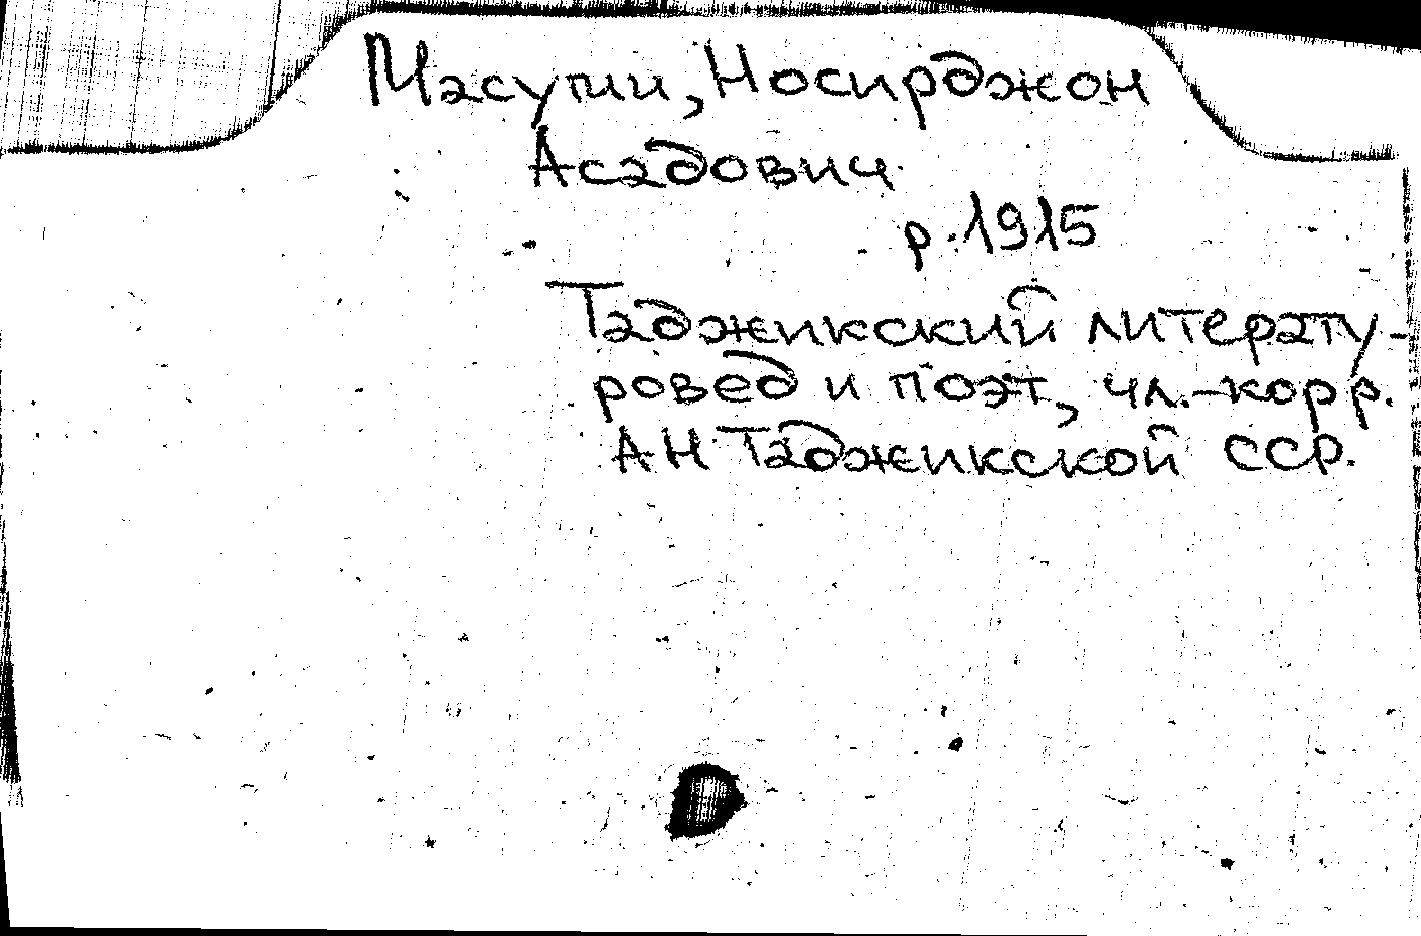 Масуми, Носирджон
Асадович
р. 1915
Таджикский литерату-
ровед и поэт, чл.-корр.
АН Таджикской ССР.